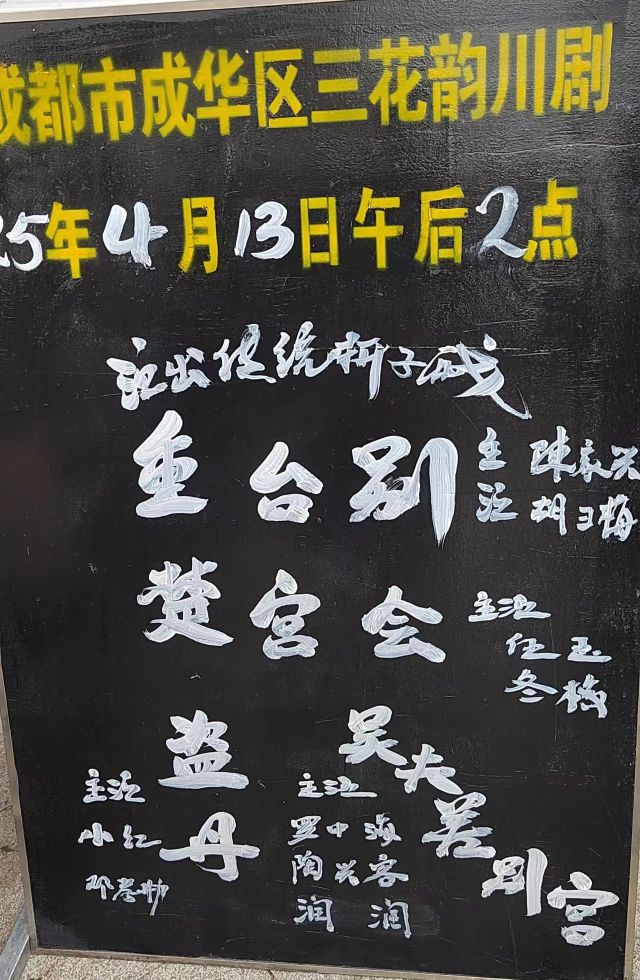 成都市成华区三花韵川剧
25年4月13日午后2点
演出传统折子戏
重台别
主演 陈家兴
胡习梅
楚宫会
主演
任玉
冬梅
盗丹
主演
小红
吴夫差别宫
主演
中海
陶兴客
润润